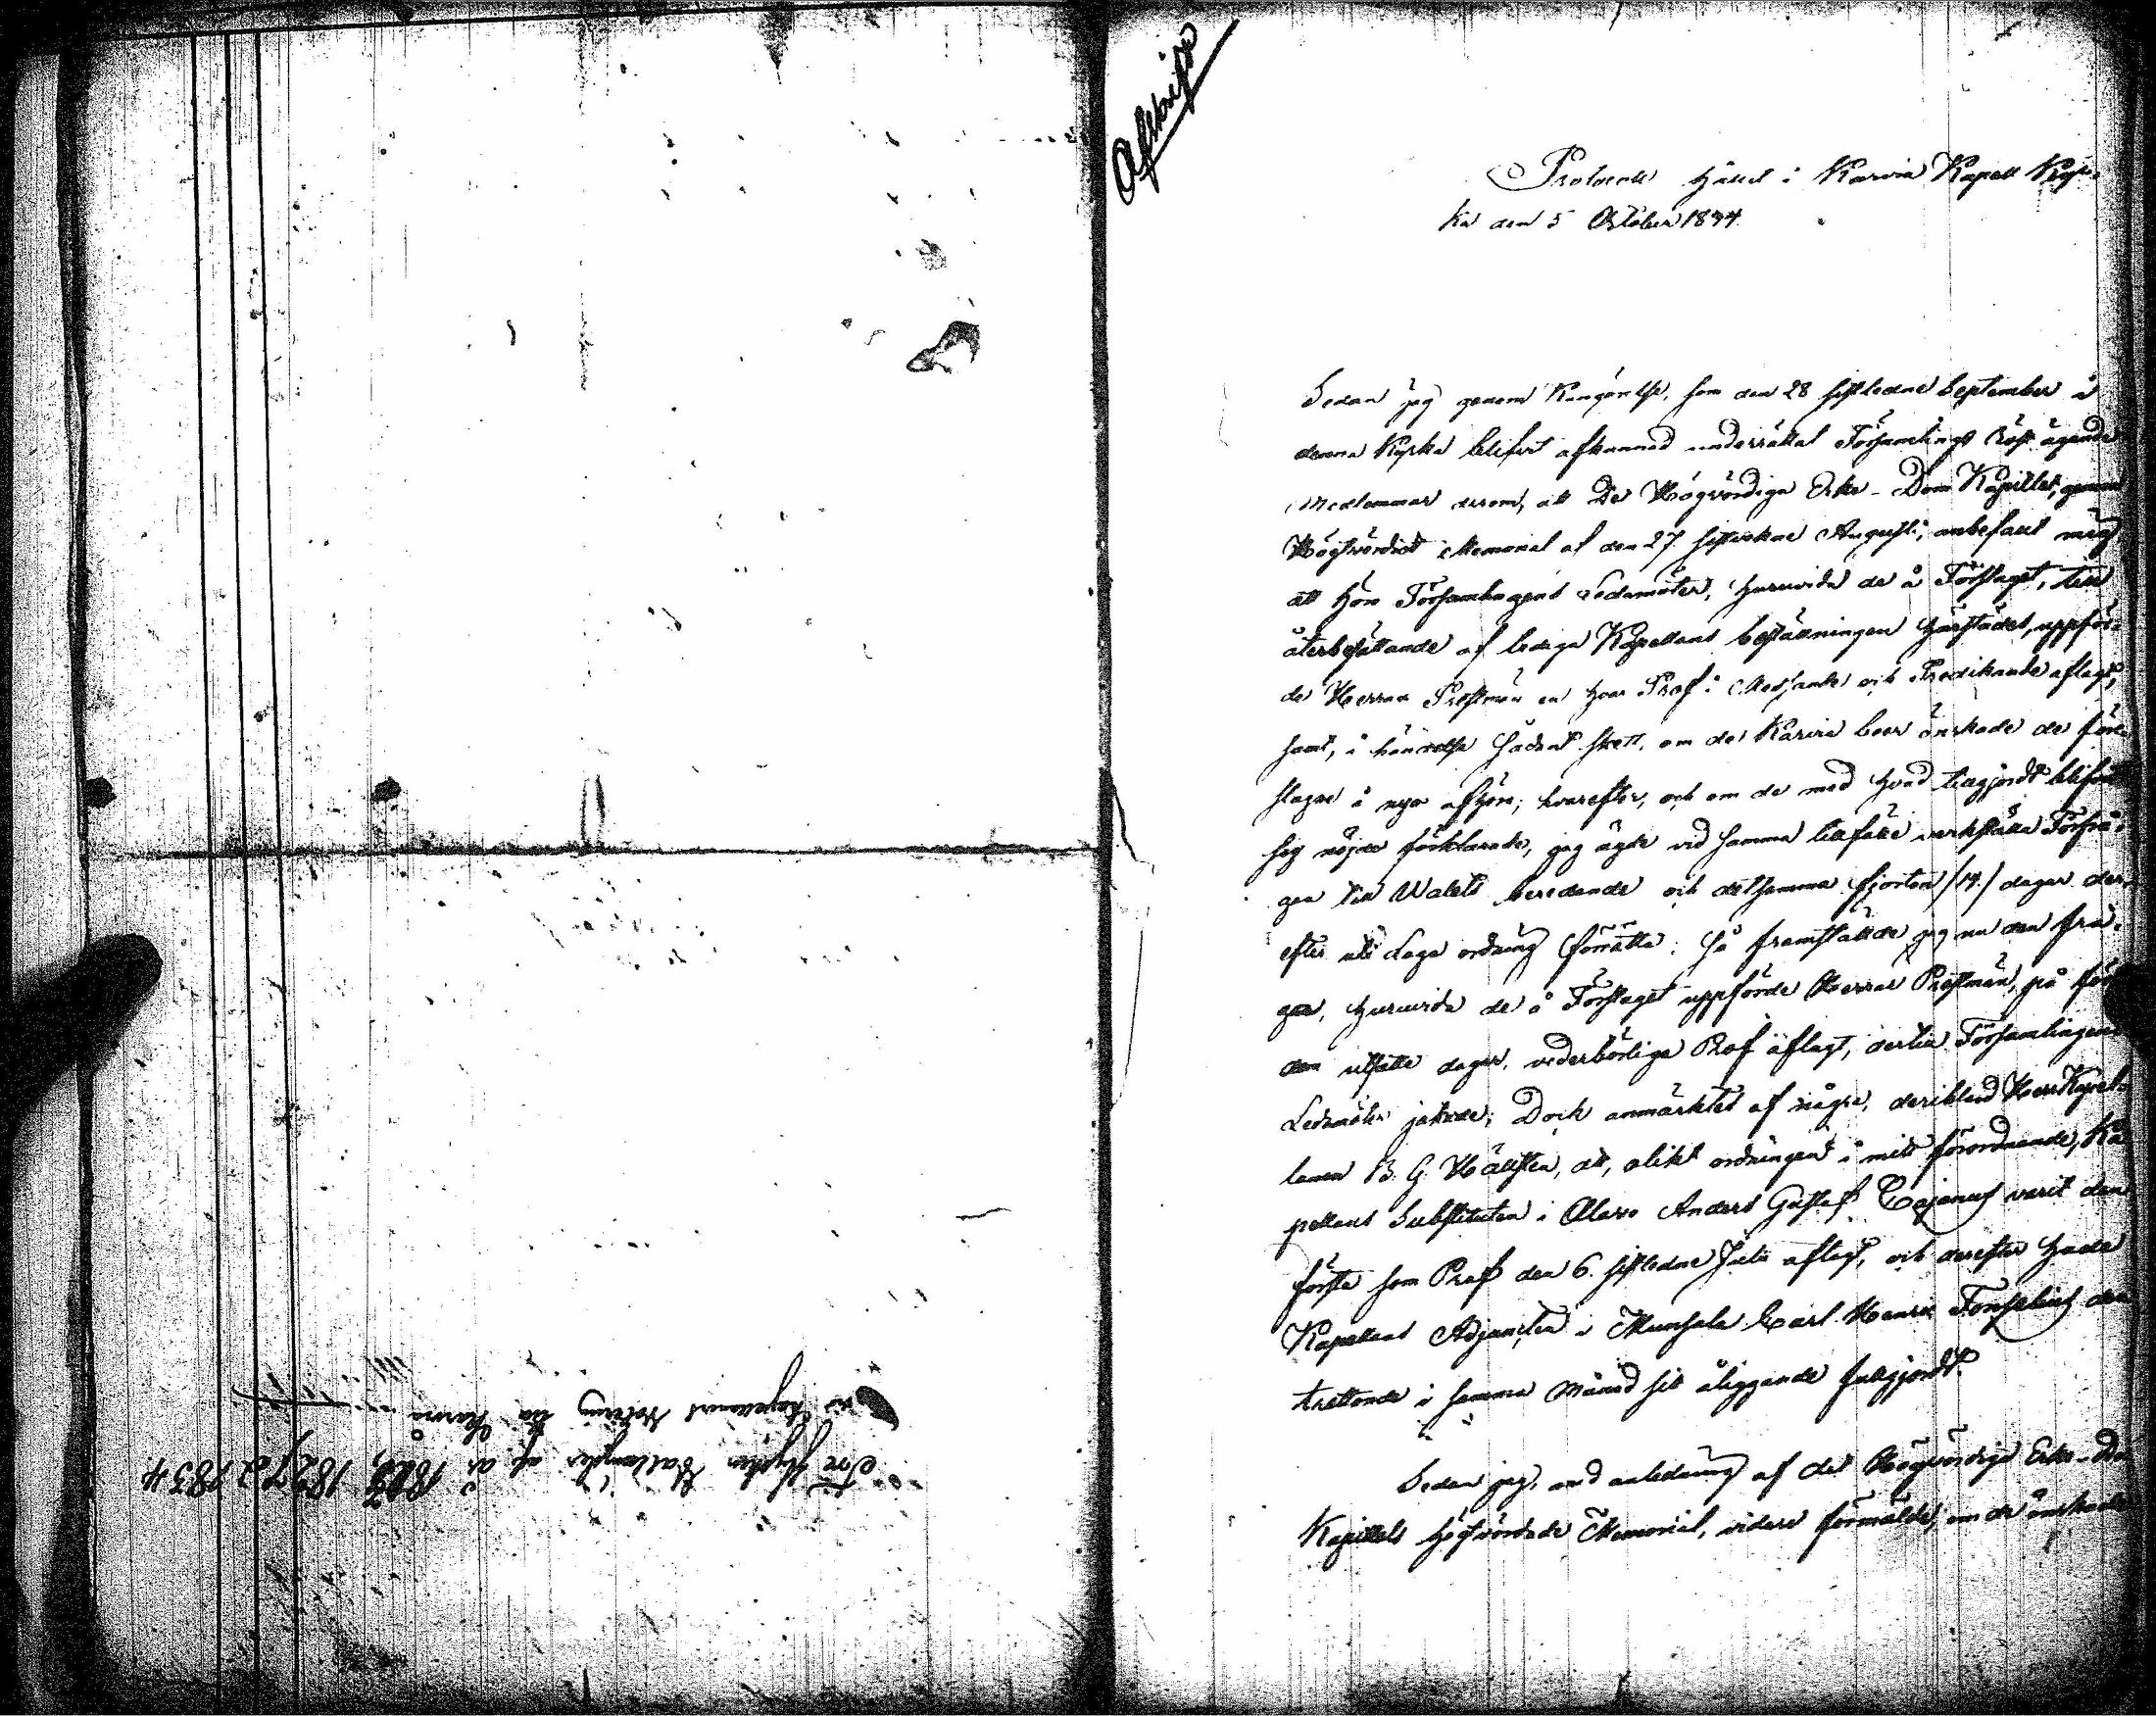 Afskrift
Protocoll hållet i Karvia Kapell Kyr-
ka den 5 October 1834.
Sedan jag genom Kungörelse, som den 28 sistledne September i
denna Kyrka blifvit afkunnad underrättat Församlings Röst ägande
Medlemmar derom, att De Högvördiga Erke-Dom Kapitlet, genom
Högtvördiet Memorial af den 27 sistvekne Augusti, anbefallt mig
att höra Församlingens Ledamöter, huruvida de å Förslaget, till
återbesättande af lediga Kapellans beställningen härstädes, uppför-
de Herrar Prestmän en hvar Prof i Messande och Predikande aflagt,
samt, i händelse sådant skett, om de Karvia boer önskade de före-
slagne å nyo afhöra; hvarefter, och om de med hvad tillgjordt blifvit
sig nöjde förklarade, jag ägde vid samma tillfälle verkställa Förfrå-
gan till Walets beredande och detsamma fjorton /14/ dagar der-
efter uti Laga ordning förrätta; Så framställde jag nu den frå-
gan, huruvida de å Förslaget uppförde Herrar Prestmän, på för
dem utsatte dagar, vederbörliga Prof aflagt, dertill Församlingens
Ledamöter jakade; Dock anmärktes af någre, deribland Herr Kapel-
lanen B. G. Hällsten, att, olikt ordningen i mitt förordnande, Ka-
pellans Substituten i Alavo Anders Gustaf Cajanus varit den
förste som Prof den 6 sistledne Julii aflagt, och derefter hade
Kapellans Adjuncten i Munsala Carl Henric Forsselius den
trettonde i samma månad sitt åliggande fullgjordt.
Sedan jag, med anledning af det Högvördiga Erke-Do
Kapitlets högtvördade Memorial, vidare förmälde, om de önskade
Tre stycken Vallängder af år 1827 & 1834
vid Kapellanens Val till Karvia